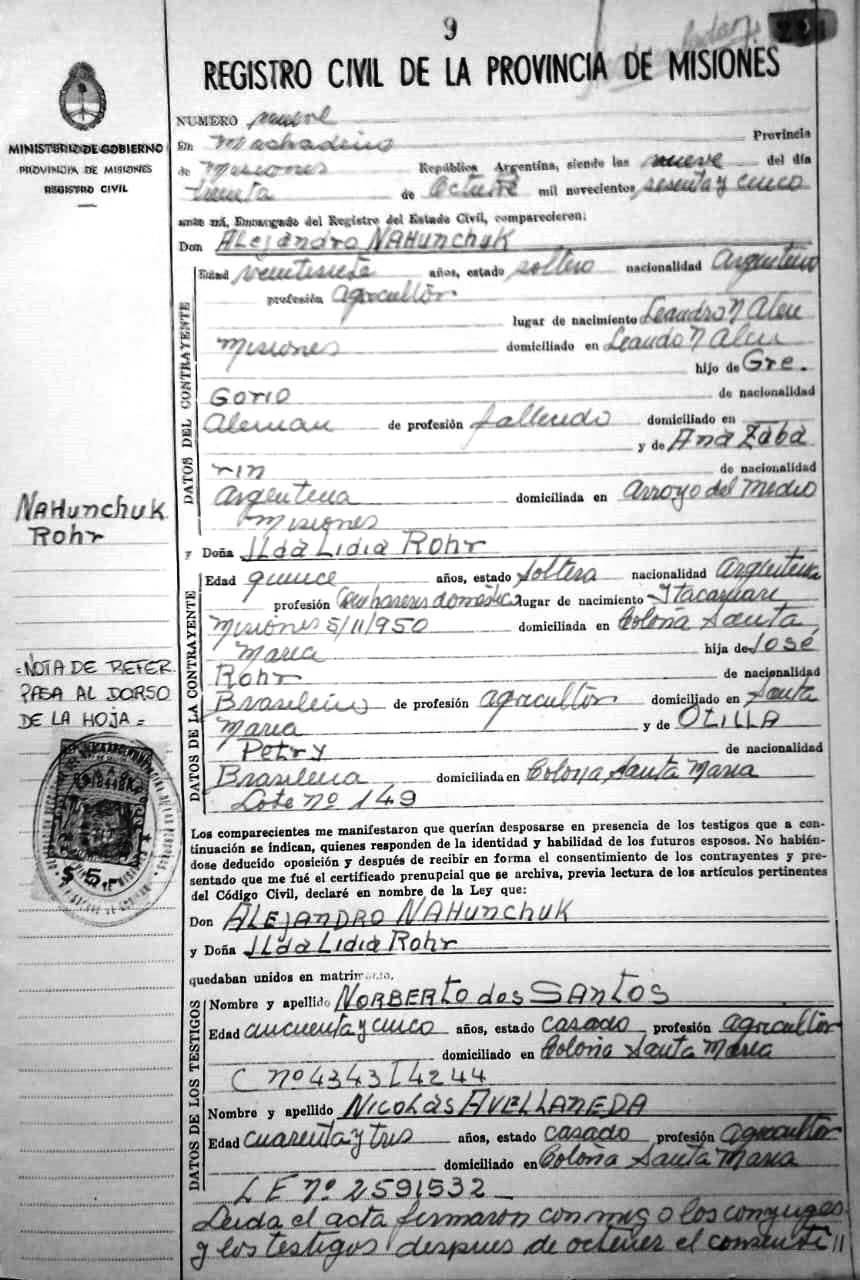 9
REGISTRO CIVIL DE LA PROVINCIA DE MISIONES
MINISTERIO DE GOBIERNO
PROVINCIA DE MISIONES
REGISTRO CIVIL
NUMERO nueve
En Machadeiro Provincia
de Misiones República Argentina, siendo las nueve del día
treinta de Octubre mil novecientos sesenta y cinco
ante mí, Encargado del Registro del Estado Civil, comparecieron:
Don Alejandro NAHunchuk
DATOS DEL CONTRAYENTE
Edad veintisiete años, estado soltero nacionalidad Argentino
profesión agricultor
lugar de nacimiento Leandro N Alem
Misiones domiciliado en Leandro N Alem
hijo de Gre.
Gorio de nacionalidad
Aleman de profesión fallecido domiciliado en
y de Ana Zaba
rin de nacionalidad
Argentina domiciliada en Arroyo del Medio
Misiones
NAHunchuk
Rohr
y Doña Ilda Lidia Rohr
DATOS DE LA CONTRAYENTE
Edad quince años, estado Soltera nacionalidad Argentina
profesión domestica lugar de nacimiento Itacaruare
Misiones 5/11/950 domiciliada en Colonia Santa
Maria hija de José
Rohr de nacionalidad
Brasileiro de profesión agricultor domiciliado en Santa
Maria y de OTILLA
Petry de nacionalidad
Brasilera domiciliada en Colonia Santa Maria
Lote nº 149
=NOTA DE REFER
PASA AL DORSO
DE LA HOJA=
$ 5
Los comparecientes me manifestaron que querían desposarse en presencia de los testigos que a con-
tinuación se indican, quienes responden de la identidad y habilidad de los futuros esposos. No habién-
dose deducido oposición y después de recibir en forma el consentimiento de los contrayentes y pre-
sentado que me fué el certificado prenupcial que se archiva, previa lectura de los artículos pertinentes
del Código Civil, declaré en nombre de la Ley que:
Don ALEJANDRO NAHunchuk
y Doña Ilda Lidia Rohr
quedaban unidos en matrimonio.
DATOS DE LOS TESTIGOS
Nombre y apellido NORBERTO dos SANTOS
Edad cincuenta y cinco años, estado casado profesión agricultor
domiciliado en Colonia Santa Maria
C nº 4343 I 4244
Nombre y apellido NICOLÁS AVELLANEDA
Edad cuarenta y tres años, estado casado profesión agricultor
domiciliado en Colonia Santa Maria
L E nº 2591532
Leida el acta firmaron conmigo los conyuges
y los testigos despues de octener el consenti //